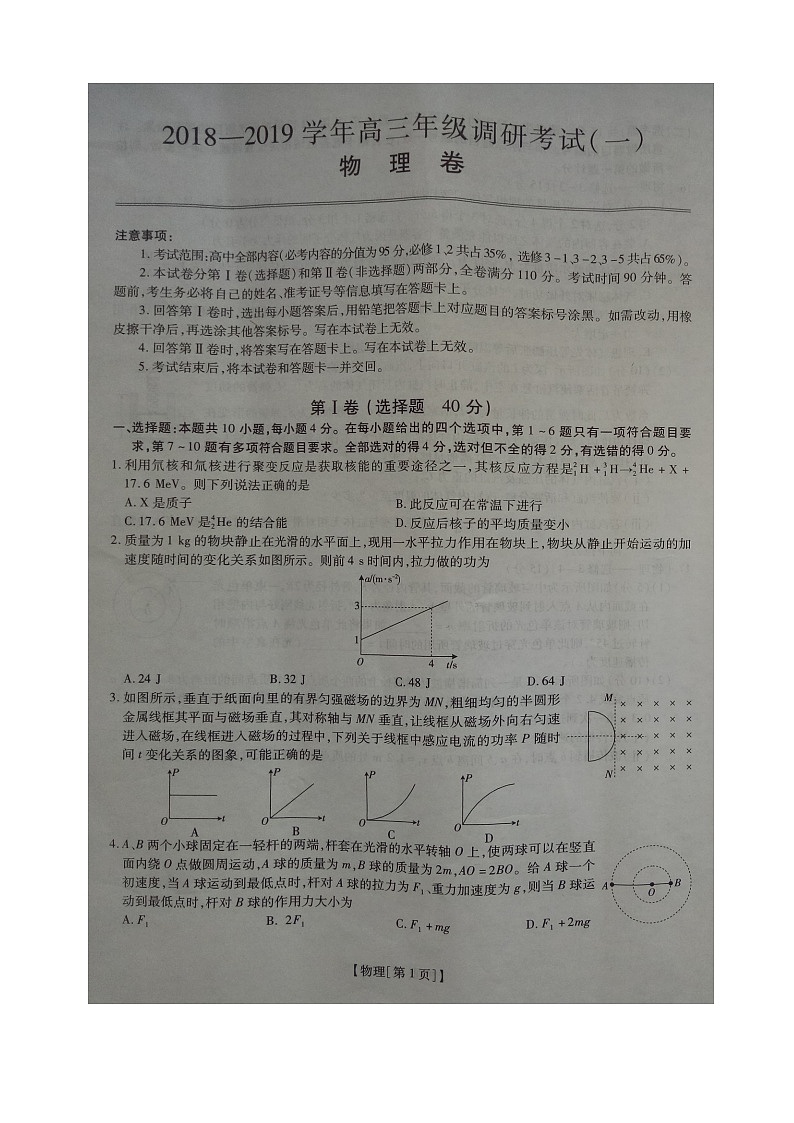 2018—2019 学年高三年级调研考试(一)
物 理 卷
注意事项:
1. 考试范围:高中全部内容(必考内容的分值为95分,必修1、2共占35%, 选修3-1、3-2、3-5共占65%)。
2. 本试卷分第Ⅰ卷(选择题)和第Ⅱ卷(非选择题)两部分,全卷满分110分。考试时间90分钟。答
题前,考生务必将自己的姓名、准考证号等信息填写在答题卡上。
3. 回答第Ⅰ卷时,选出每小题答案后,用铅笔把答题卡上对应题目的答案标号涂黑。如需改动,用橡
皮擦干净后,再选涂其他答案标号。写在本试卷上无效。
4. 回答第Ⅱ卷时,将答案写在答题卡上。写在本试卷上无效。
5. 考试结束后,将本试卷和答题卡一并交回。
第Ⅰ卷(选择题 40分)
一、选择题:本题共10小题,每小题4分。在每小题给出的四个选项中,第1~6题只有一项符合题目要
求,第7~10题有多项符合题目要求。全部选对的得4分,选对但不全的得2分,有选错的得0分。
1. 利用氘核和氚核进行聚变反应是获取核能的重要途径之一,其核反应方程是²₁H+³₁H→⁴₂He+X+
17.6 MeV。则下列说法正确的是
A. X是质子 B. 此反应可在常温下进行
C. 17.6 MeV是⁴₂He的结合能 D. 反应后核子的平均质量变小
2. 质量为1 kg的物块静止在光滑的水平面上,现用一水平拉力作用在物块上,物块从静止开始运动的加
速度随时间的变化关系如图所示。则前4 s时间内,拉力做的功为
a/(m·s⁻²)
3
1
O 4 t/s
A. 24 J B. 32 J C. 48 J D. 64 J
3. 如图所示,垂直于纸面向里的有界匀强磁场的边界为MN,粗细均匀的半圆形
金属线框其平面与磁场垂直,其对称轴与MN垂直,让线框从磁场外向右匀速
进入磁场,在线框进入磁场的过程中,下列关于线框中感应电流的功率P随时
间t变化关系的图象,可能正确的是
M
N
P P P P
O t O t O t O t
A B C D
4. A、B两个小球固定在一轻杆的两端,杆套在光滑的水平转轴O上,使两球可以在竖直
面内绕O点做圆周运动,A球的质量为m,B球的质量为2m,AO=2BO。给A球一个
初速度,当A球运动到最低点时,杆对A球的拉力为F₁、重力加速度为g,则当B球运
动到最低点时,杆对B球的作用力大小为
A O B
A. F₁ B. 2F₁ C. F₁+mg D. F₁+2mg
【物理[第1页]】